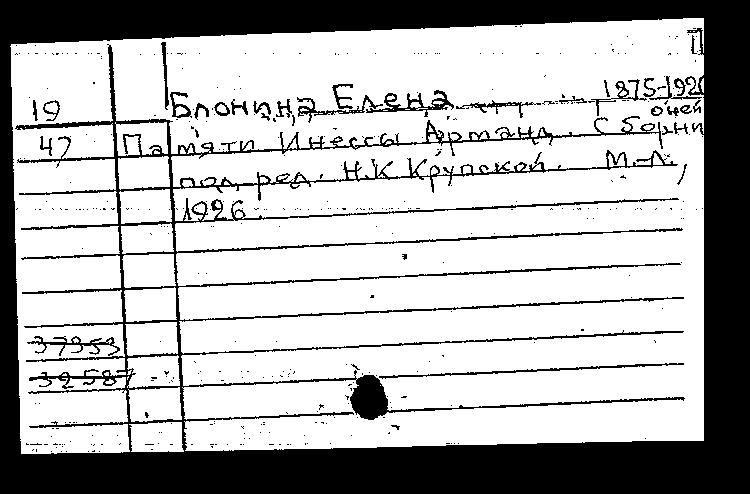 П
19 Блонина Елена 1875-1920
о ней
47 Памяти Инессы Арманд. Сборни
под ред. Н.К Крупской. М.-Л.,
1926
37353
32587